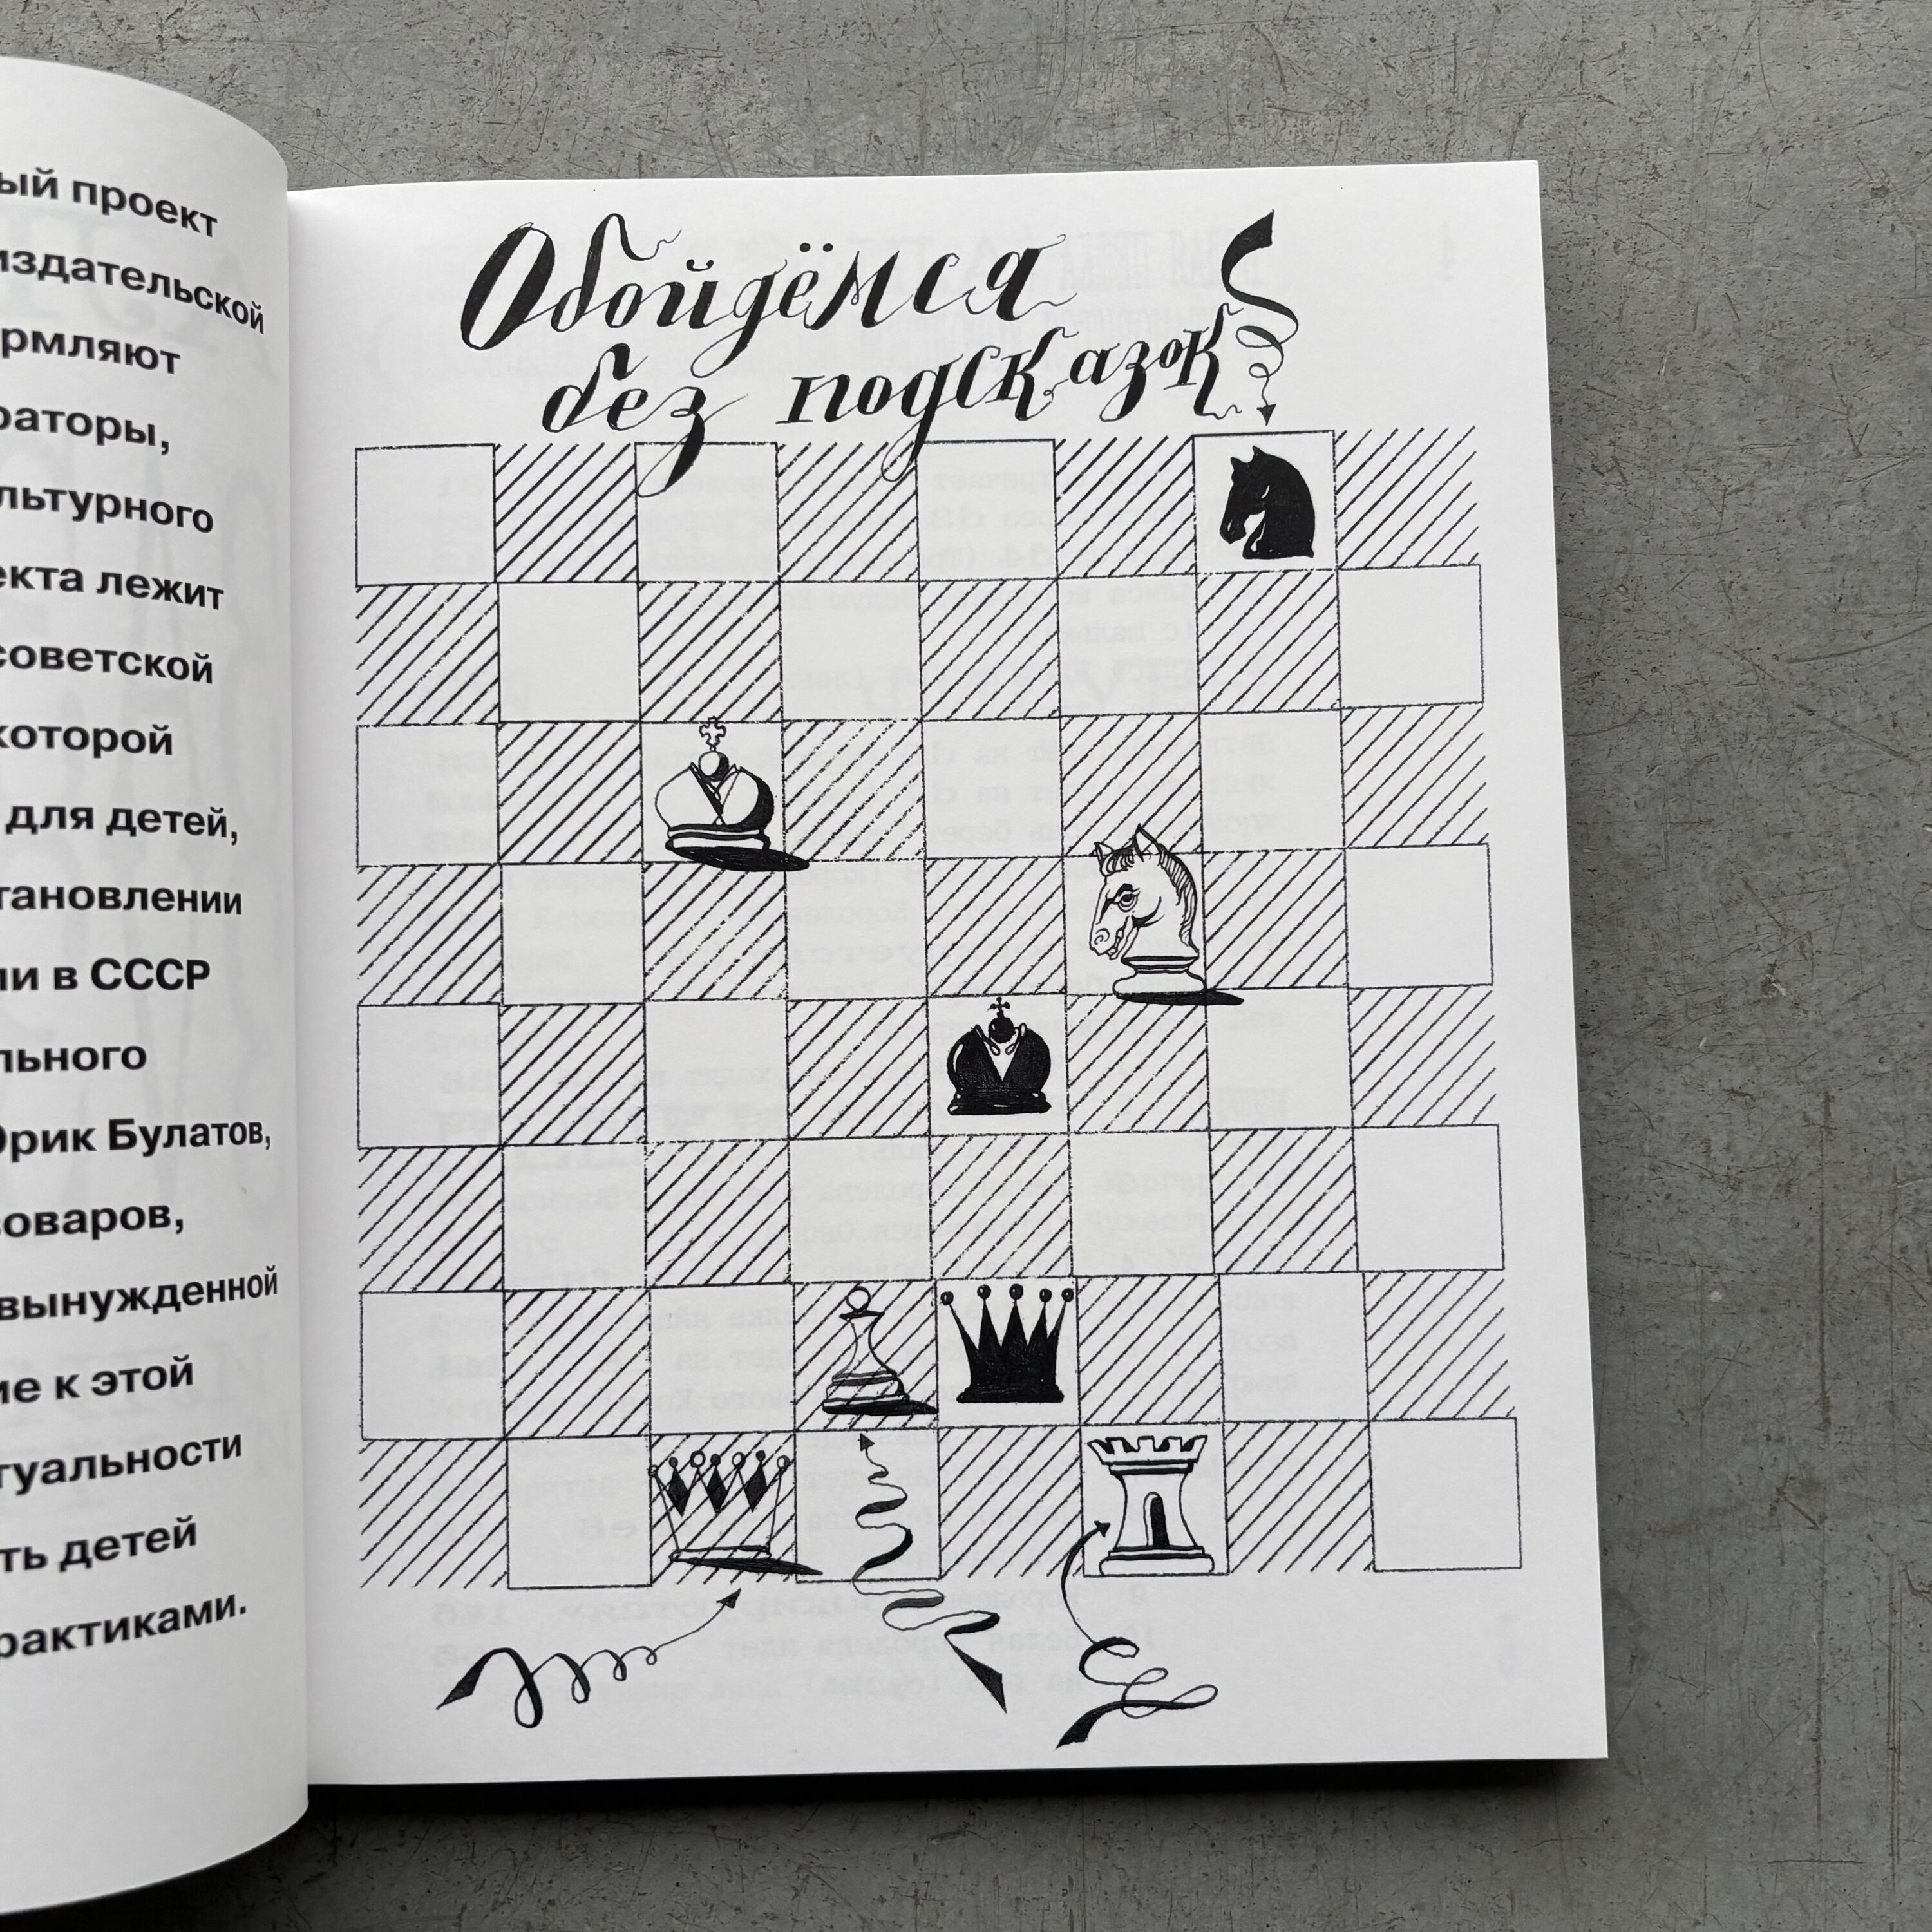 ый проект
издательской
рмляют
раторы,
льтурного
екта лежит
советской
которой
для детей,
тановлении
ии в СССР
льного
Эрик Булатов,
оваров,
вынужденной
ие к этой
туальности
ть детей
рактиками.
Обойдёмся
без подсказок